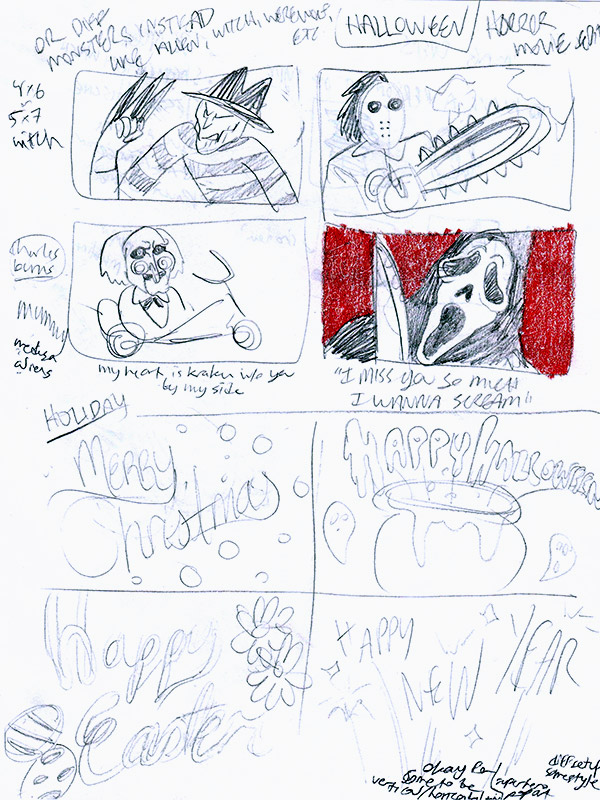 OR DIFF
MONSTERS INSTEAD
LIKE ALIEN, WITCH, WEREWOLF,
ETC
HALLOWEEN
HORROR
MOVIE
4x6
or
5x7
witch
Charles
burns
medusa
aliens
my heart is kraken
by my side
"I MISS YOU SO MUCH
I WANNA SCREAM"
HOLIDAY
Merry
Christmas
HAPPY HALLOWEEN
Happy
Easter
HAPPY
NEW
YEAR
Okay for
some to be
vertical/horizontal